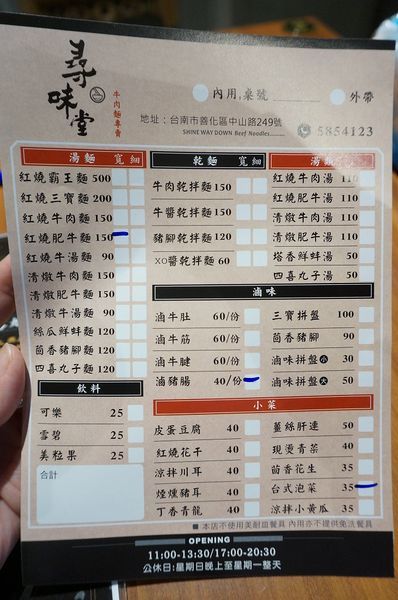 尋味堂
牛肉麵專賣
內用,桌號 外帶
地址：台南市善化區中山路249號
SHINE WAY DOWN Beef Noodles
5854123
湯麵 寬 細
紅燒霸王麵 500
紅燒三寶麵 200
紅燒牛肉麵 150
紅燒肥牛麵 150
紅燒牛湯麵 90
清燉牛肉麵 150
清燉肥牛麵 150
清燉牛湯麵 90
絲瓜鮮蚌麵 120
茴香豬腳麵 120
四喜丸子麵 120
飲料
可樂 25
雪碧 25
美粒果 25
合計
乾麵 寬 細
牛肉乾拌麵 150
牛醬乾拌麵 150
豬腳乾拌麵 120
XO醬乾拌麵 60
湯類
紅燒牛肉湯 110
紅燒肥牛湯 110
清燉牛肉湯 110
清燉肥牛湯 110
塔香鮮蚌湯 50
四喜丸子湯 50
滷味
滷牛肚 60/份
滷牛筋 60/份
滷牛腱 60/份
滷豬腸 40/份
三寶拼盤 100
茴香豬腳 90
滷味拼盤 小 30
滷味拼盤 大 50
小菜
皮蛋豆腐 40
紅燒花干 40
涼拌川耳 40
煙燻豬耳 40
丁香青龍 40
薑絲肝連 50
現燙青菜 40
茴香花生 35
台式泡菜 35
涼拌小黃瓜 35
■本店不使用美耐皿餐具 內用亦不提供免洗餐具
OPENING
11:00-13:30/17:00-20:30
公休日:星期日晚上至星期一整天